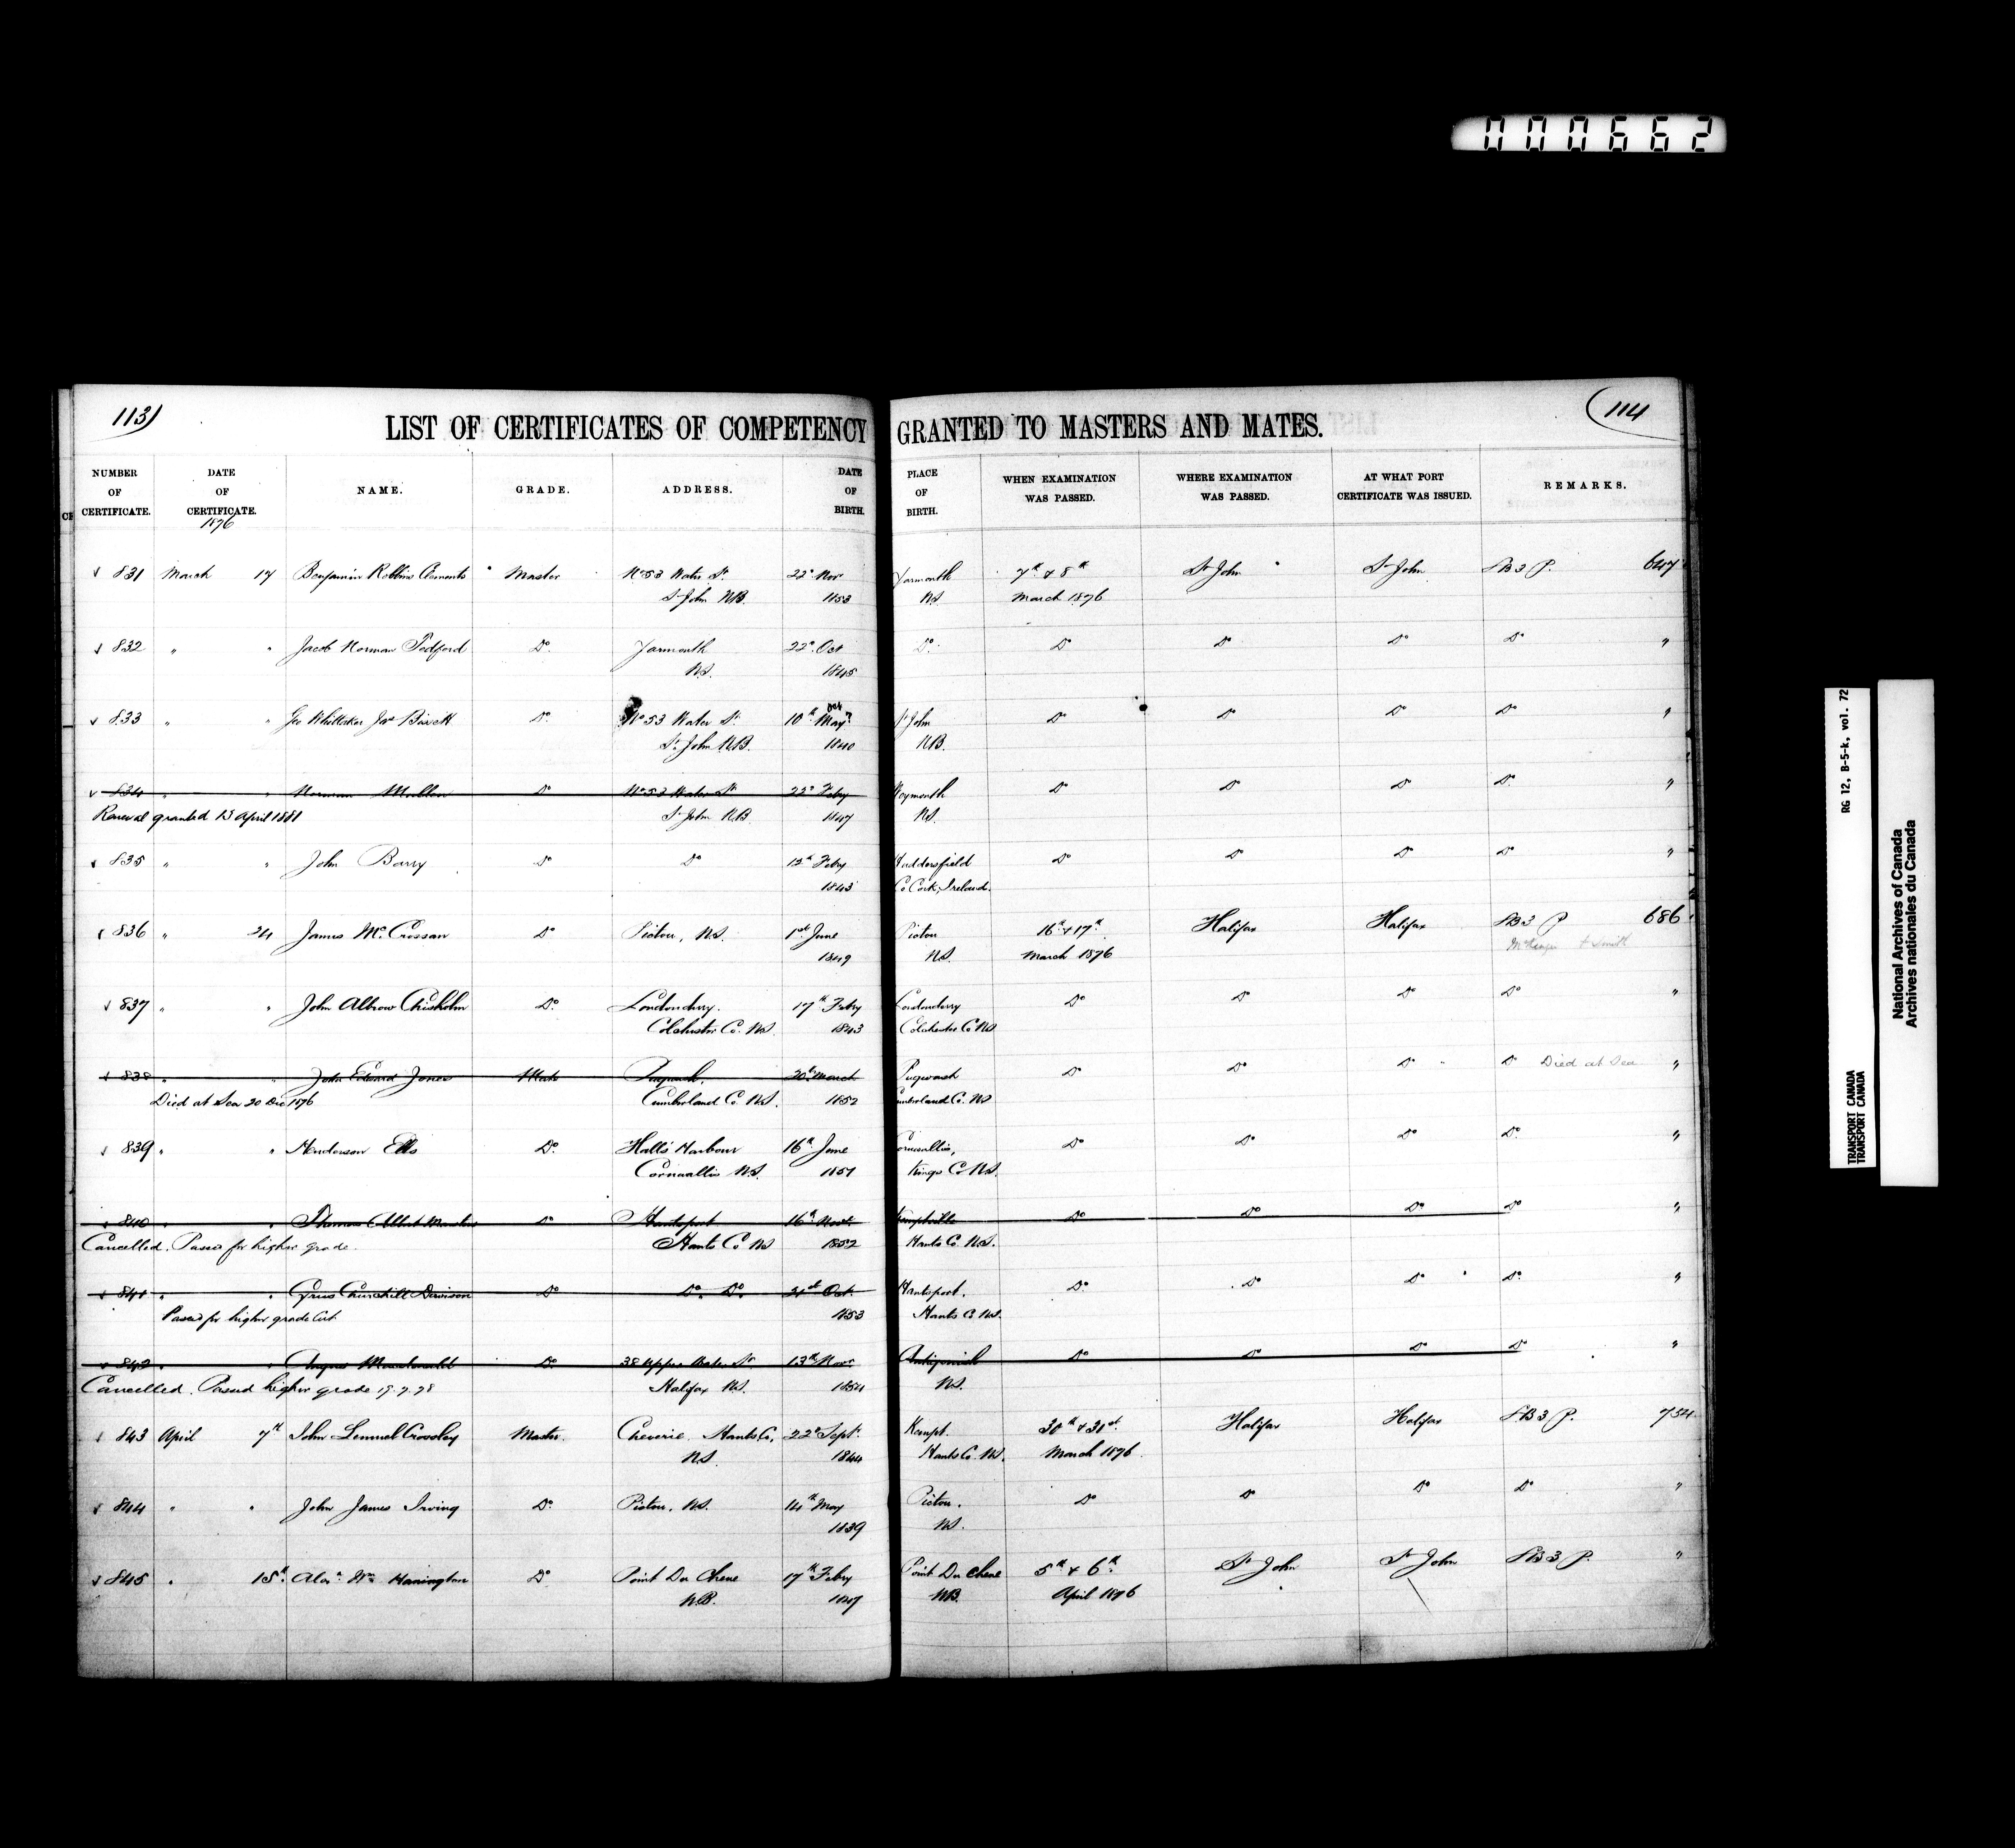 000662
113)
LIST OF CERTIFICATES OF COMPETENCY GRANTED TO MASTERS AND MATES.
(114
NUMBER OF CERTIFICATE. DATE OF CERTIFICATE. NAME. GRADE. ADDRESS. DATE OF BIRTH. PLACE OF BIRTH. WHEN EXAMINATION WAS PASSED. WHERE EXAMINATION WAS PASSED. AT WHAT PORT CERTIFICATE WAS ISSUED. REMARKS.
1876
831 March 17 Benjamin Robbins Clements Master No 53 Water St. 22d Nov Yarmouth 7th & 8th St John St John SB3 P. 647
St John NB. 1853 NS. March 1876
832 " " Jacob Norman Tedford Do. Yarmouth 22d Oct Do. Do Do Do Do "
NS. 1845
833 " " Geo Whittaker Jas Bissett Do. No 53 Water St. 10th May Oct St John Do Do Do Do "
St. John N.B. 1840 NB.
834 " " Norman Do No 53 Water St 22d Feby Weymouth Do Do Do Do. "
Renewal granted 13 April 1881 St John NB 1847 NS.
835 " " John Barry Do Do 12th Feby Huddersfield Do Do Do Do "
1843 Co Cork, Ireland.
836 " 24 James McCrossan Do Pictou, N.S. 1st June Pictou 16th & 17th Halifax Halifax SB3 P 686
1849 N.S. March 1876 & Smith
837 " " John Albrow Chisholm Do. Londonderry. 17th Feby Londonderry Do Do Do Do "
Colchester Co. NS. 1843 Colchester Co NS
838 " " John Edward Jones Mate Pugwash, 20th March Pugwash Do Do Do Do Died at Sea "
Died at Sea 20 Dec 1876 Cumberland Co. NS. 1852 Cumberland Co. NS
839 " " Henderson Ells Do. Halls Harbour 16th June Cornwallis, Do Do Do Do. "
Cornwallis N.S. 1851 Kings Co NS.
840 " " Thomas Albert Do Hantsport 16th Novr. Kemptville Do Do Do Do "
Cancelled. Passed for higher grade. Hants Co NS 1852 Hants Co. N.S.
841 " " Cyrus Churchill Davison Do Do. Do. 21st Oct. Hantsport. Do. Do Do Do. "
Passed for higher grade Cert. 1853 Hants Co NS.
842 " " Angus Macdonald Do 38 Upper Water St. 13th Novr. Antigonish Do Do Do Do "
Cancelled. Passed higher grade Halifax N.S. 1854 NS.
843 April 7th John Lemuel Crossley Master. Cheverie Hants Co, 22d Sept. Kempt. 30th & 31st. Halifax Halifax SB3 P. 754
N.S. 1844 Hants Co. NS. March 1876
844 " " John James Irving Do. Pictou, NS. 14th May Pictou. Do Do Do Do "
1839 NS.
845 " 15th. Alexr. Wm Hanington Do Point Du Chene 17th Feby Point Du Chene 5th & 6th. St John St John SB3 P. "
N.B. 1847 NB. April 1876
RG 12, B-5-k, vol. 72
TRANSPORT CANADA
TRANSPORT CANADA
National Archives of Canada
Archives nationales du Canada